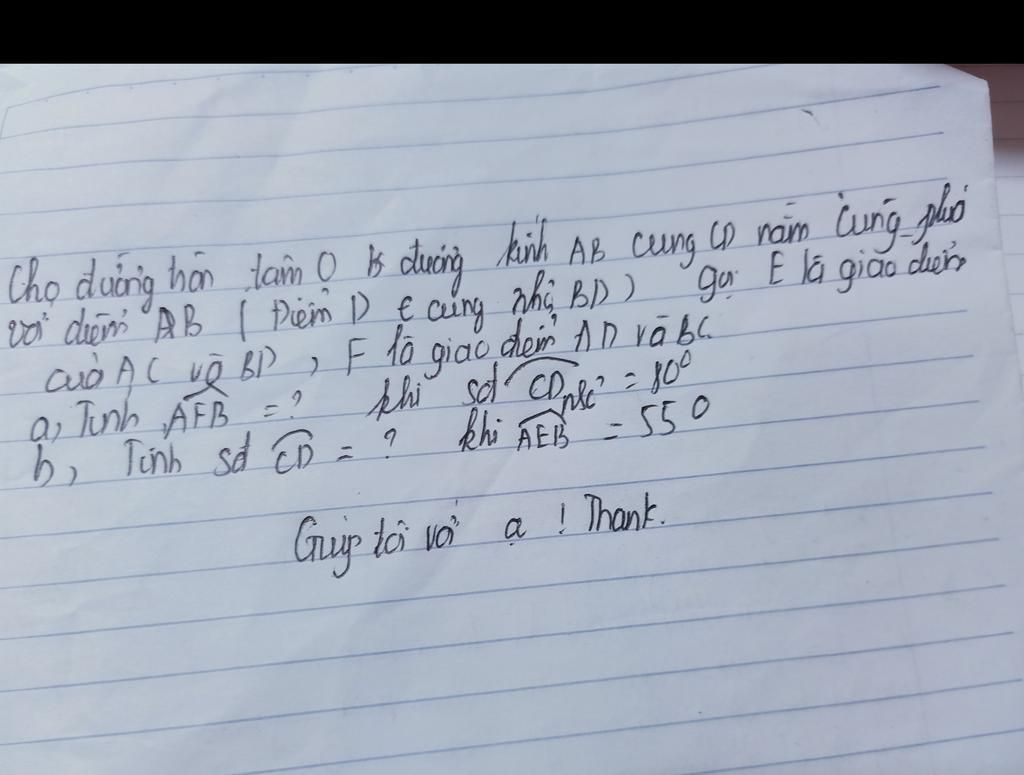 Chọ đường hòn tam O đường kính AB cung CD nằm cùng phia
với điểm AB ( Điểm D ∈ cung nhỏ BD ) gọi E là giao điểm
của AC và BD , F là giao điểm AD và BC
a, Tính AFB = ? khi sđ CD nhỏ = 80⁰
b, Tính sđ CD = ? khi AEB = 55 0
Giúp tôi với ạ ! Thank.